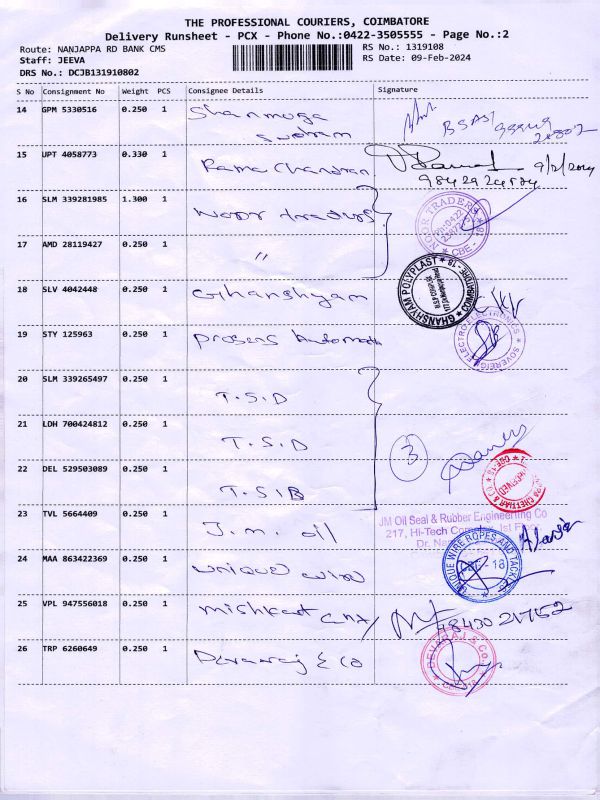 THE PROFESSIONAL COURIERS, COIMBATORE
Delivery Runsheet - PCX - Phone No.:0422-3505555 - Page No.:2
Route: NANJAPPA RD BANK CMS RS No.: 1319108
Staff: JEEVA RS Date: 09-Feb-2024
DRS No.: DCJB131910802
S No Consignment No Weight PCS Consignee Details Signature
14 GPM 5330516 0.250 1 Shanmuga
15 UPT 4058773 0.330 1 Rama Chandran 9/2/2024
9842924574
16 SLM 339281985 1.300 1 Noor traders NOOR TRADERS CBE - 18
17 AMD 28119427 0.250 1 "
18 SLV 4042448 0.250 1 Ghanshyam GHANSHYAM POLYPLAST COIMBATORE - 18
19 STY 125963 0.250 1 SOVEREIGN ELECTRO ELECTRONICS
20 SLM 339265497 0.250 1 T.S.D
21 LDH 700424812 0.250 1 T.S.D 3
22 DEL 529503089 0.250 1 CHETTIAR & CBE-18
23 TVL 5664409 0.250 1 J.m. oil JM Oil Seal & Rubber Engineering Co
217, Hi-Tech 1st Floor,
24 MAA 863422369 0.250 1 unique wire UNIQUE WIRE ROPES AND TACKLES CBE - 18
25 VPL 947556018 0.250 1 mishkat
26 TRP 6260649 0.250 1 Devaraj & Co DEVARAJ & Co.